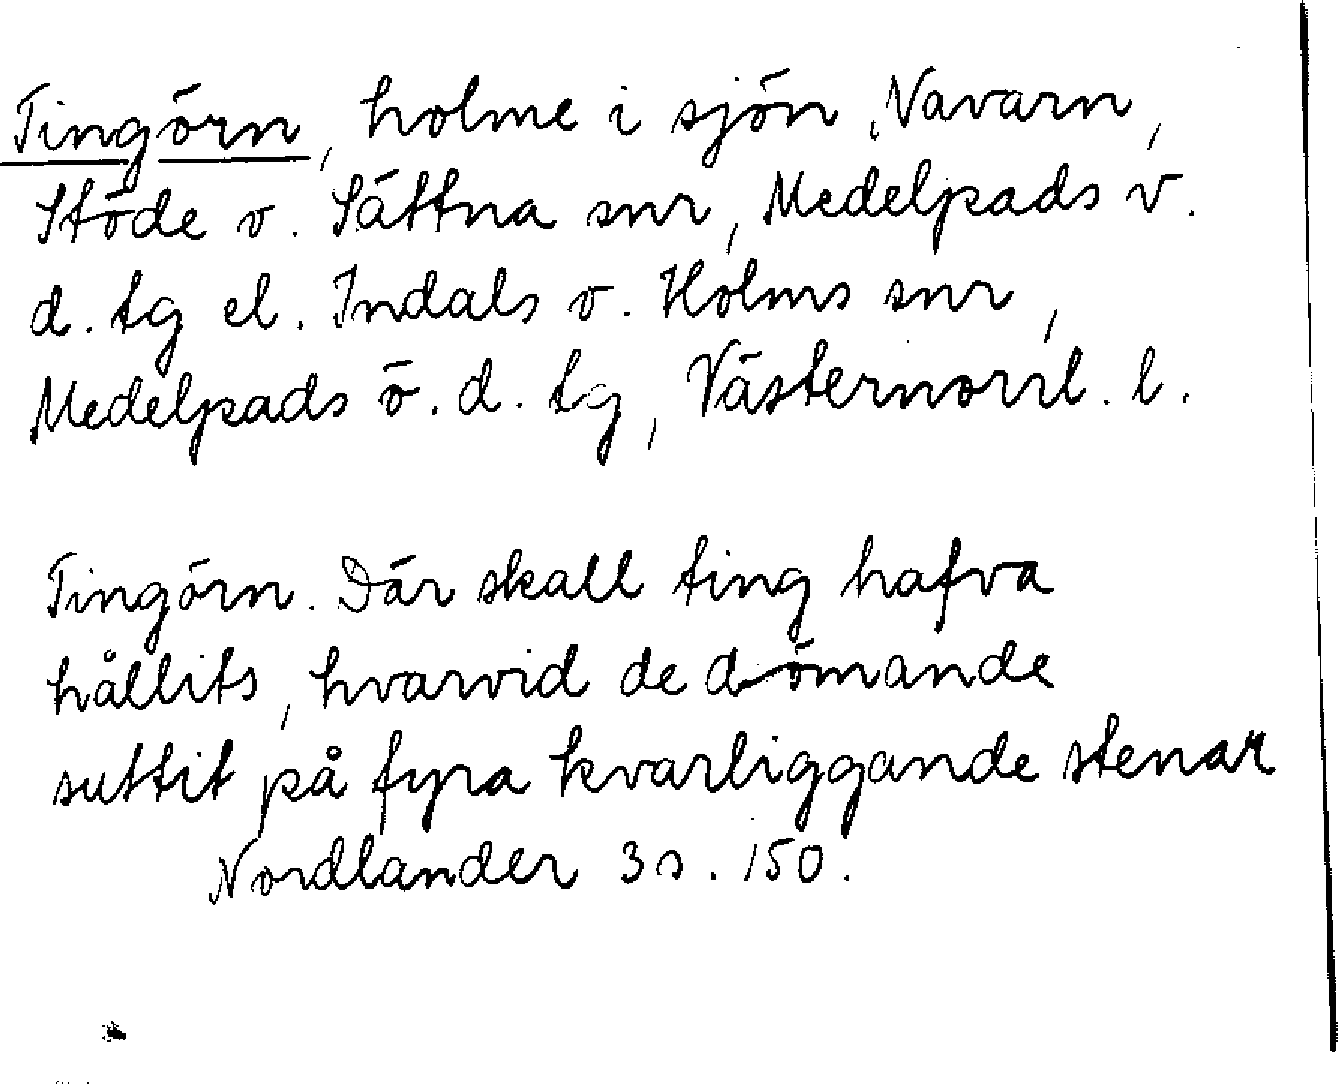 Tingörn, holme i sjön Navarn,
Stöde o. Sättna snr, Medelpads v.
d. tg el. Indals o. Holms snr,
Medelpads ö. d. tg, Västernorrl. l.
Tingörn. Där skall ting hafva
hållits, hvarvid de dömande
suttit på fyra kvarliggande stenar
Nordlander 3 s. 150.